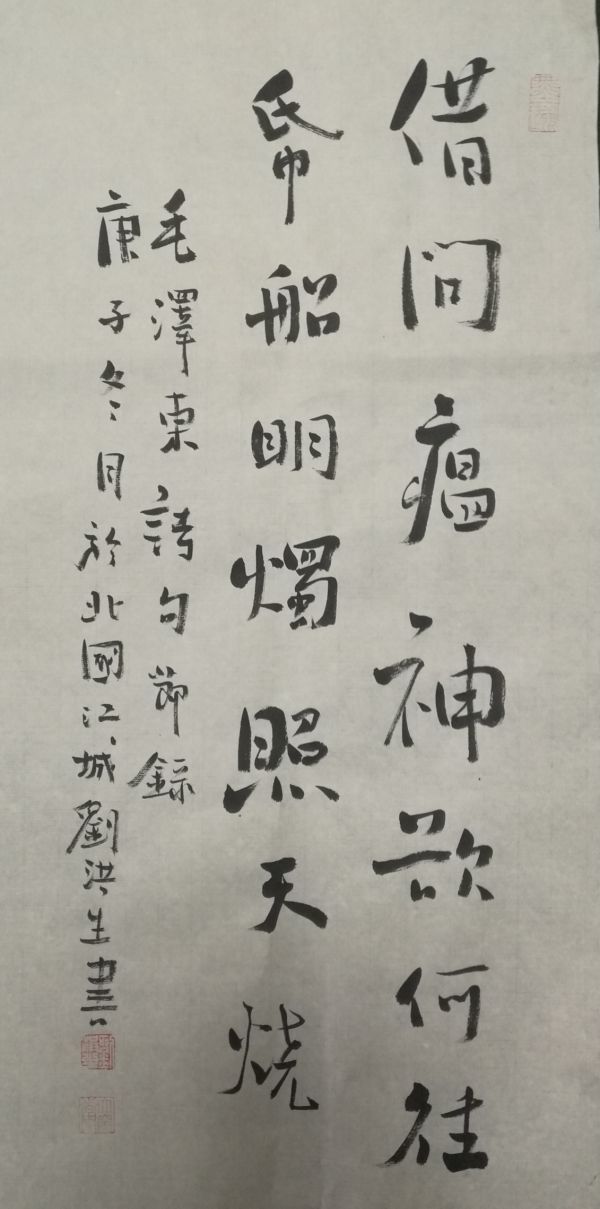 借問瘟神欲何往
帋船明燭照天烧
毛澤東詩句節錄
庚子冬月於北國江城劉洪生書